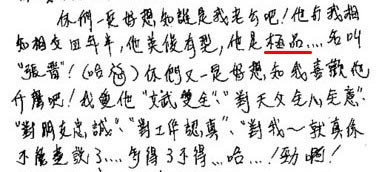 你們一定好想知誰是我老公吧！他与我相
知相交四年半，他英俊有型，他是極品....名叫
"張晋"！(哈) 你們又一定好想知我喜歡他
什麼吧！我重他"文武雙全"、"對天父全心全意"、
"對朋友忠誠"、"對工作認真"、"對我～就真係
不能盡說了....多得了不得...哈...！勁啊！